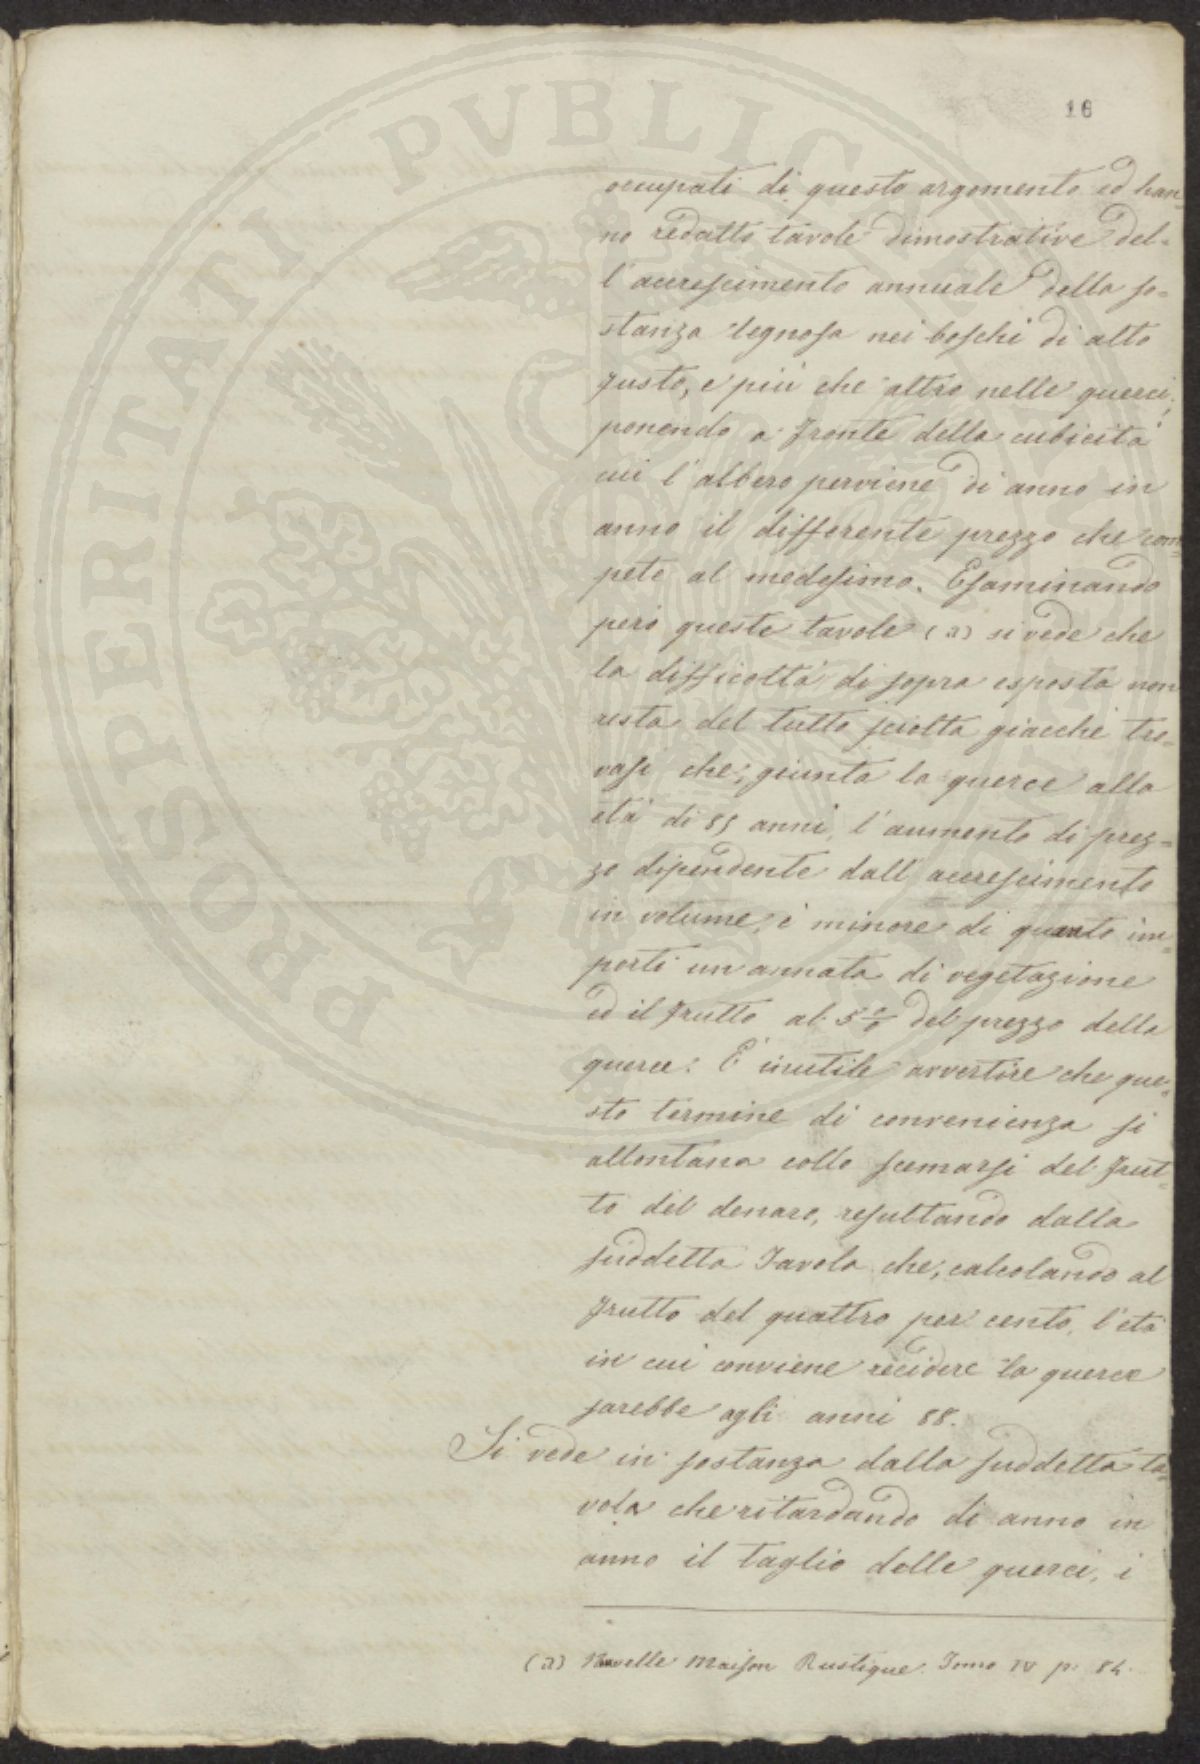 16
PROSPERITATI PVBLICAE
ocupati di questo argomento ed han-
no redatto tavole dimostrative del-
l'accrescimento annuale della so-
stanza legnosa nei boschi di alto
fusto, e più che altro nelle querci,
ponendo a fronte della cubicità
cui l'albero perviene di anno in
anno il differente prezzo che com-
pete al medesimo. Esaminando
però queste tavole (a) si vede che
la difficoltà di sopra esposta non
resta del tutto sciolta giacchè tro-
vasi che, giunta la querce alla
età di 85 anni, l'aumento di prez-
zo dipendente dall'accrescimento
in volume, è minore di quanto im-
porti un annata di vegetazione
ed il frutto al 5 % del prezzo della
querce. È inutile avvertire che que-
sto termine di convenienza si
allontana collo scemarsi del frut-
to del denaro, resultando dalla
suddetta Tavola che, calcolando al
frutto del quattro per cento, l'età
in cui conviene recidere la querce
sarebbe agli anni 88.
Si vede in sostanza dalla suddetta ta-
vola che ritardando di anno in
anno il taglio delle querci, i
(a) Nouvelle Maison Rustique. Tomo IV p. 84.